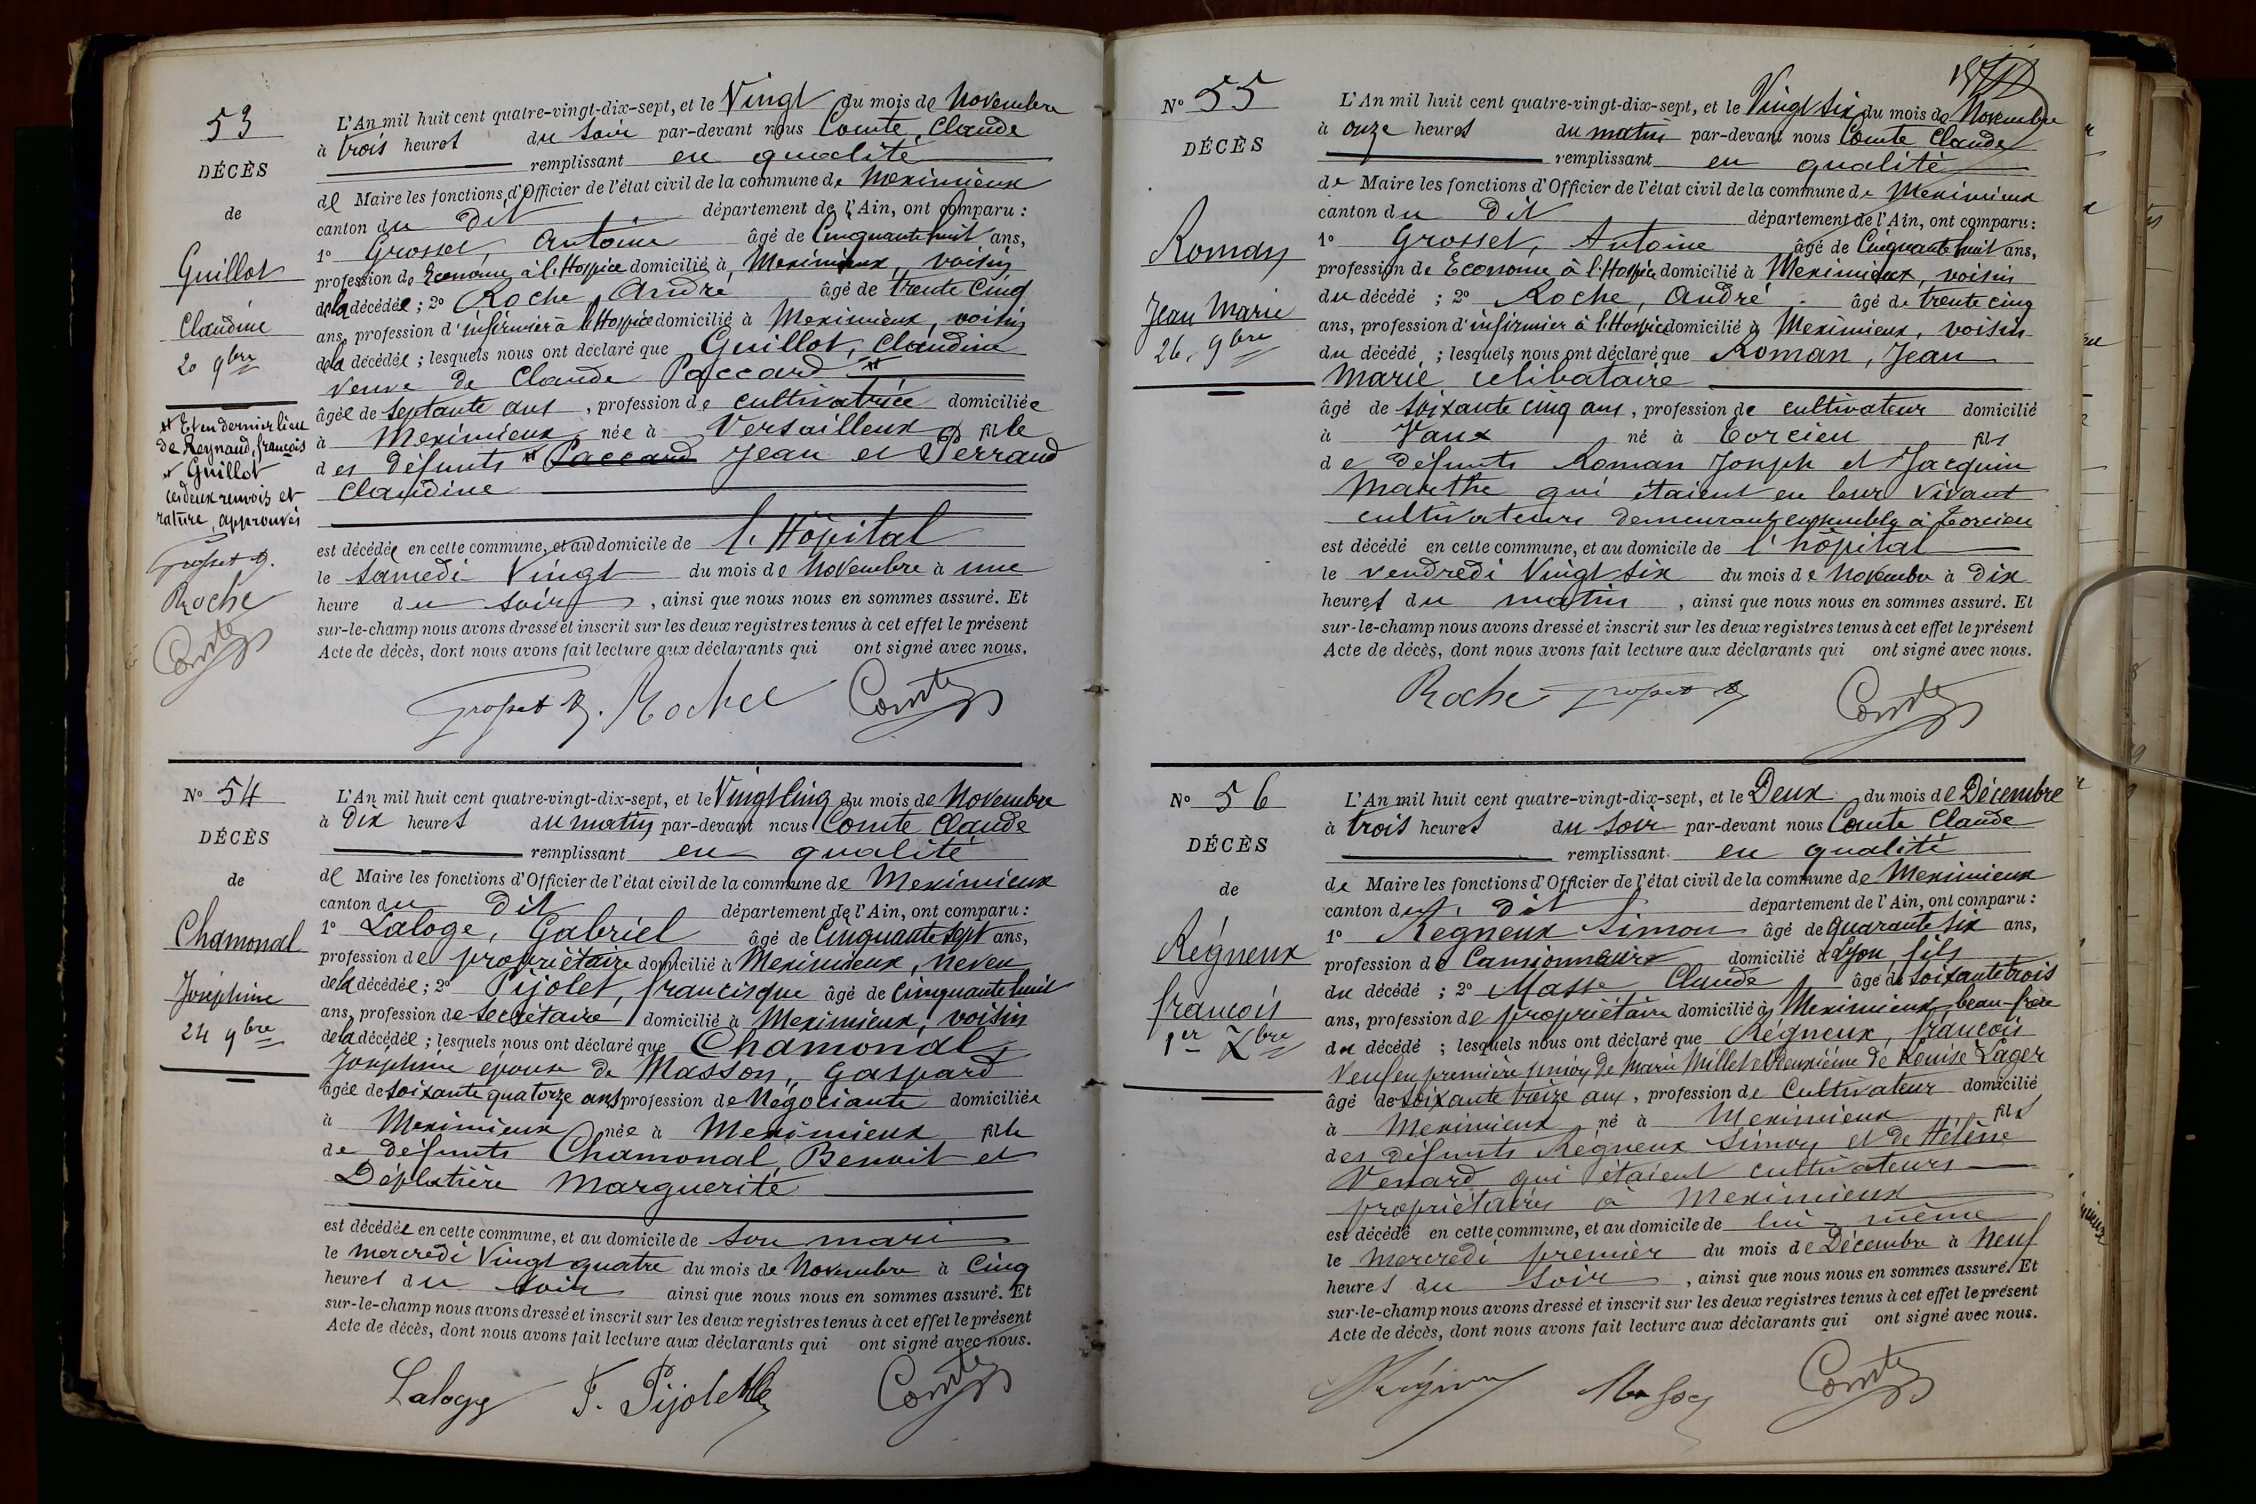 53
DÉCÈS
de
Guillot
Claudine
20 9bre
Et en dernier lieu
de Reynaud, françois
Guillot
ces deux renvois et
rature, approuvés
Grosset A.
Roche
Comte
L'An mil huit cent quatre-vingt-dix-sept, et le Vingt du mois de Novembre
à trois heures du soir par-devant nous Comte, Claude
remplissant en qualité
de Maire les fonctions d'Officier de l'état civil de la commune de Meximieux
canton du Dit département de l'Ain, ont comparu :
1º Grosset, Antoine âgé de Cinquante huit ans,
profession de Econome à l'Hospice domicilié à Meximieux, voisin
de la décédée ; 2º Roche, André âgé de trente cinq
ans, profession d'infirmier à l'Hospice domicilié à Meximieux, voisin
de la décédée ; lesquels nous ont déclaré que Guillot, Claudine
veuve de Claude Paccard
âgée de septante ans, profession de cultivatrice domiciliée
à Meximieux née à Versailleux fille
des défunts Paccard Jean et Perraud
Claudine
est décédée en cette commune, et au domicile de l'Hôpital
le samedi Vingt du mois de Novembre à une
heure du soir, ainsi que nous nous en sommes assuré. Et
sur-le-champ nous avons dressé et inscrit sur les deux registres tenus à cet effet le présent
Acte de décès, dont nous avons fait lecture aux déclarants qui ont signé avec nous.
Grosset A. Roche Comte
Nº 54
DÉCÈS
de
Chamonal
Joséphine
24 9bre
L'An mil huit cent quatre-vingt-dix-sept, et le Vingt Cinq du mois de Novembre
à Dix heures du matin par-devant nous Comte Claude
remplissant en qualité
de Maire les fonctions d'Officier de l'état civil de la commune de Meximieux
canton du Dit département de l'Ain, ont comparu :
1º Laloge, Gabriel âgé de Cinquante sept ans,
profession de propriétaire domicilié à Meximieux, neveu
de la décédée ; 2º Pijolet, francisque âgé de Cinquante huit
ans, profession de secrétaire domicilié à Meximieux, voisin
de la décédée ; lesquels nous ont déclaré que Chamonal,
Joséphine épouse de Masson, Gaspard
âgée de soixante quatorze ans profession de Négociante domiciliée
à Meximieux née à Meximieux fille
de défunts Chamonal, Benoit et
Déplatière Marguerite
est décédée en cette commune, et au domicile de son mari
le mercredi Vingt quatre du mois de Novembre à Cinq
heures du soir ainsi que nous nous en sommes assuré. Et
sur-le-champ nous avons dressé et inscrit sur les deux registres tenus à cet effet le présent
Acte de décès, dont nous avons fait lecture aux déclarants qui ont signé avec nous.
Laloge F. Pijolet Comte
Nº 55
DÉCÈS
Roman
Jean Marie
26, 9bre
L'An mil huit cent quatre-vingt-dix-sept, et le Vingt six du mois de Novembre
à onze heures du matin par-devant nous Comte Claude
remplissant en qualité
de Maire les fonctions d'Officier de l'état civil de la commune de Meximieux
canton du Dit département de l'Ain, ont comparu :
1º Grosset, Antoine âgé de Cinquante huit ans,
profession de Econome à l'Hospice domicilié à Meximieux, voisin
du décédé ; 2º Roche, André. âgé de trente cinq
ans, profession d'infirmier à l'Hospice domicilié à Meximieux, voisin
du décédé ; lesquels nous ont déclaré que Roman, Jean
Marie célibataire
âgé de soixante cinq ans, profession de cultivateur domicilié
à Vaux né à Torcieu fils
de défunts Roman Joseph et Jacquin
Marthe qui étaient en leur vivant
cultivateurs demeurant ensemble à Torcieu
est décédé en cette commune, et au domicile de l'hôpital
le vendredi Vingt six du mois de Novembre à Dix
heures du matin, ainsi que nous nous en sommes assuré. Et
sur-le-champ nous avons dressé et inscrit sur les deux registres tenus à cet effet le présent
Acte de décès, dont nous avons fait lecture aux déclarants qui ont signé avec nous.
Roche Grosset A Comte
Nº 56
DÉCÈS
de
Régneux
françois
1er Xbre
L'An mil huit cent quatre-vingt-dix-sept, et le Deux du mois de Décembre
à trois heures du soir par-devant nous Comte Claude
remplissant en qualité
de Maire les fonctions d'Officier de l'état civil de la commune de Meximieux
canton du dit département de l'Ain, ont comparu :
1º Régneux Simon âgé de quarante six ans,
profession de Camionneur domicilié à Lyon, fils
du décédé ; 2º Masse Claude âgé de soixante trois
ans, profession de propriétaire domicilié à Meximieux, beau-frère
du décédé ; lesquels nous ont déclaré que Régneux, françois
Veuf en première union de Marie Millet et deuxième de Louise Lager
âgé de soixante treize ans, profession de Cultivateur domicilié
à Meximieux né à Meximieux fils
des défunts Régneux Simon et de Hélène
Venard qui étaient cultivateurs
propriétaires à Meximieux
est décédé en cette commune, et au domicile de lui-même
le Mercredi premier du mois de Décembre à Neuf
heures du soir, ainsi que nous nous en sommes assuré. Et
sur-le-champ nous avons dressé et inscrit sur les deux registres tenus à cet effet le présent
Acte de décès, dont nous avons fait lecture aux déclarants qui ont signé avec nous.
Comte